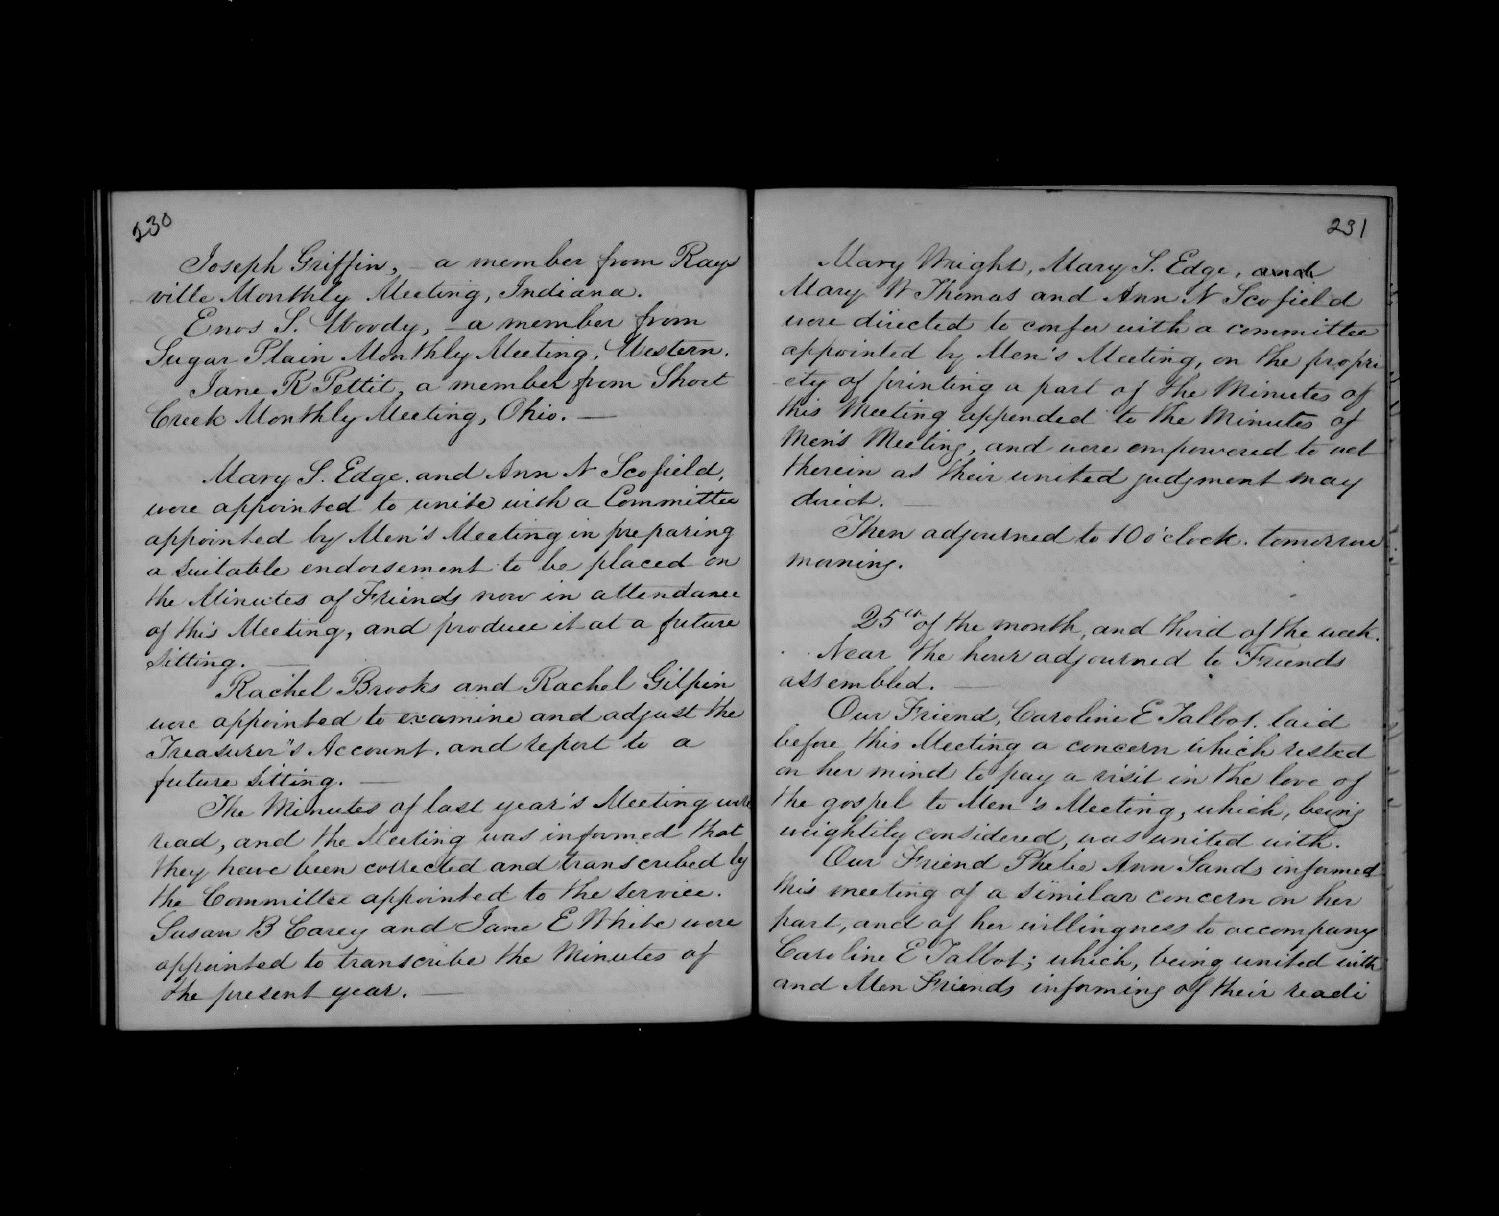 230
Joseph Griffin, – a member from Rays
ville Monthly Meeting, Indiana.
Enos S. Woody, – a member from
Sugar Plain Monthly Meeting, Western.
Jane R Pettit, a member from Short
Creek Monthly Meeting, Ohio. —
Mary S. Edge, and Ann N Scofield,
were appointed to unite with a Committee
appointed by Men's Meeting in preparing
a suitable endorsement to be placed on
the Minutes of Friends now in attendance
of this Meeting, and produce it at a future
sitting. —
Rachel Brooks and Rachel Gilpin
were appointed to examine and adjust the
Treasurer's Account, and report to a
future sitting. —
The Minutes of last year's Meeting were
read, and the Meeting was informed that
they have been corrected and transcribed by
the Committee appointed to the service.
Susan B Carey and Jane E White were
appointed to transcribe the Minutes of
the present year. —
231
Mary Wright, Mary S. Edge, and
Mary W Thomas and Ann N Scofield
were directed to confer with a committee
appointed by Men's Meeting, on the propri
ety of printing a part of the Minutes of
this Meeting appended to the Minutes of
Men's Meeting, and were empowered to act
therein as their united judgment may
direct. —
Then adjourned to 10 o'clock. tomorrow
morning.
25th of the month, and third of the week.
Near the hour adjourned to Friends
assembled. —
Our Friend, Caroline E Talbot, laid
before this Meeting a concern which rested
on her mind to pay a visit in the love of
the gospel to Men's Meeting, which, being
weightily considered, was united with.
Our Friend Phebe Ann Sands informed
this meeting of a similar concern on her
part, and of her willingness to accompany
Caroline E Talbot; which, being united with
and Men Friends informing of their readi